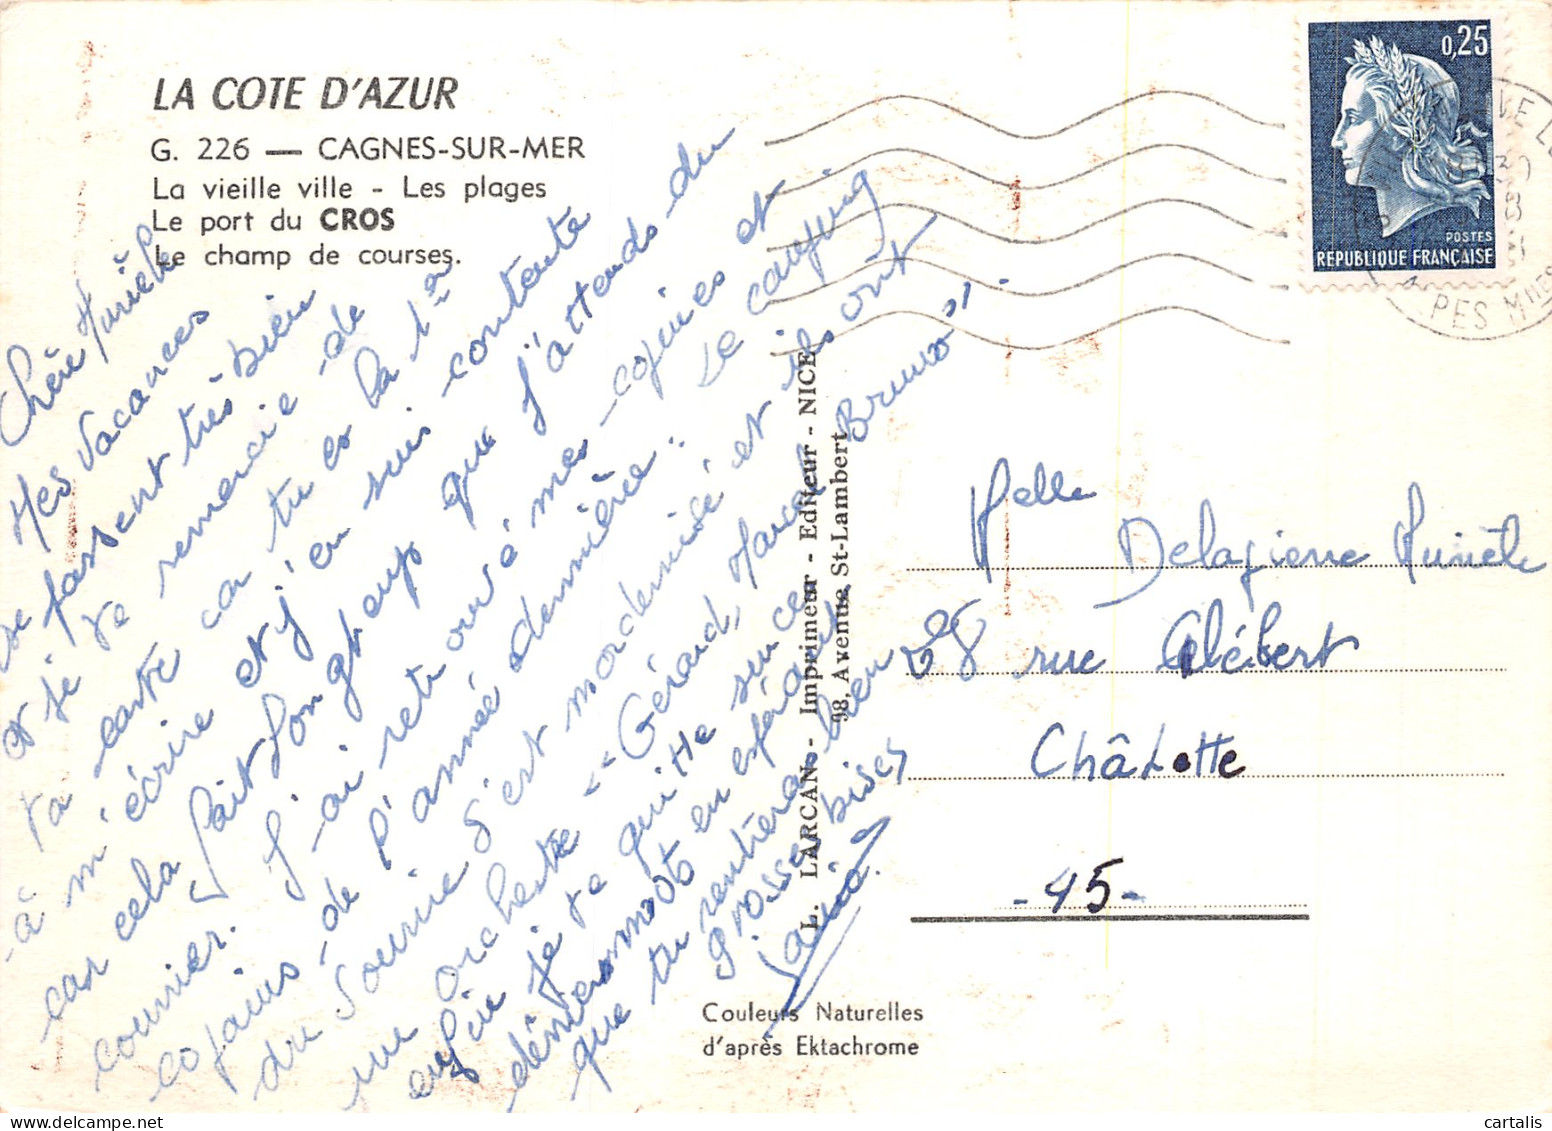 LA COTE D'AZUR
G. 226 — CAGNES-SUR-MER
La vieille ville - Les plages
Le port du CROS
Le champ de courses.
Chère Murièle
Mes vacances
se passent très bien
et je te remercie de
ta carte car tu es la 1è
à m'écrire et j'en suis contente
car cela fait longtemps que j'attends du
courrier. J'ai retrouvé mes copines et
copains de l'année dernière. Le camping
du Sourire s'est modernisé et ils ont
un orchestre "Gérard, Marcel Bruno".
enfin je te quitte sur ces
derniers mots en espérant
que tu rentreras bien
grosses bises
L. LARCAN - Imprimeur - Editeur - NICE
98, Avenue St-Lambert
Couleurs Naturelles
d'après Ektachrome
0,25
POSTES
REPUBLIQUE FRANÇAISE
VE L
PES MMES
Melle
Delagierre Murièle
28 rue Clébert
Châlette
-45-
cartalis